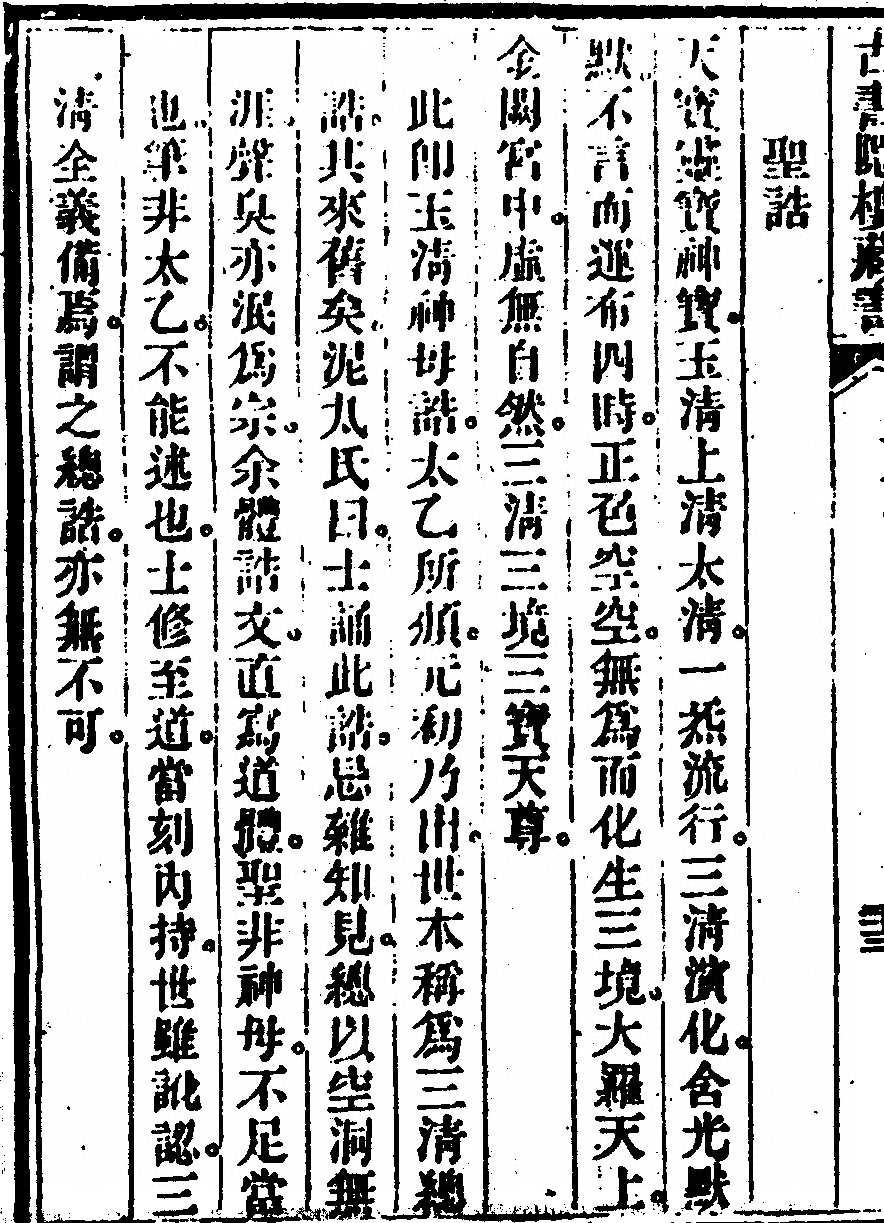 古書隱樓藏書
三三
聖誥
天寶靈寶神寶玉清上清太清一炁流行三清演化含光默
默不言而運布四時正色空空無爲而化生三境大羅天上
金闕宮中虛無自然三清三境三寶天尊
此卽玉清神母誥太乙所頒元初乃出世本稱爲三清總
誥其來舊矣泥丸氏曰士誦此誥忌雜知見總以空洞無
涯聲臭亦泯爲宗余體誥文直寫道體聖非神母不足當
也筆非太乙不能述也士修至道當刻內持世雖訛認三
清全義備焉謂之總誥亦無不可